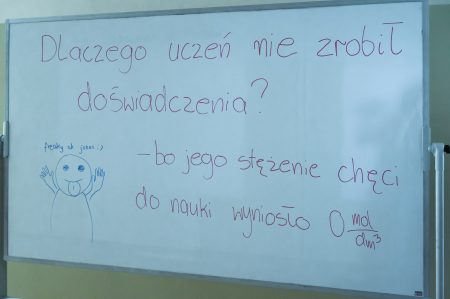 DLaczego uczeń nie zrobił
doświadczenia?
- bo jego stężenie chęci
do nauki wyniosło 0 mol/dm³